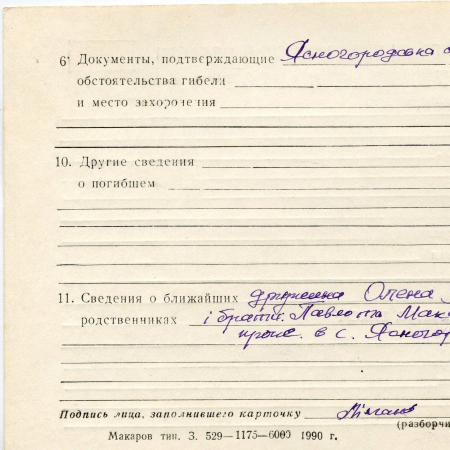 6' Документы, подтверждающие Ясногородська с
обстоятельства гибели
и место захоронения
10. Другие сведения
о погибшем
11. Сведения о ближайших дружина Олена
родственниках і брати: Павло та Мак
прож. в с. Ясногор
Подпись лица, заполнившего карточку
(разборчи
Макаров тип. З. 529—1175—6000 1990 г.